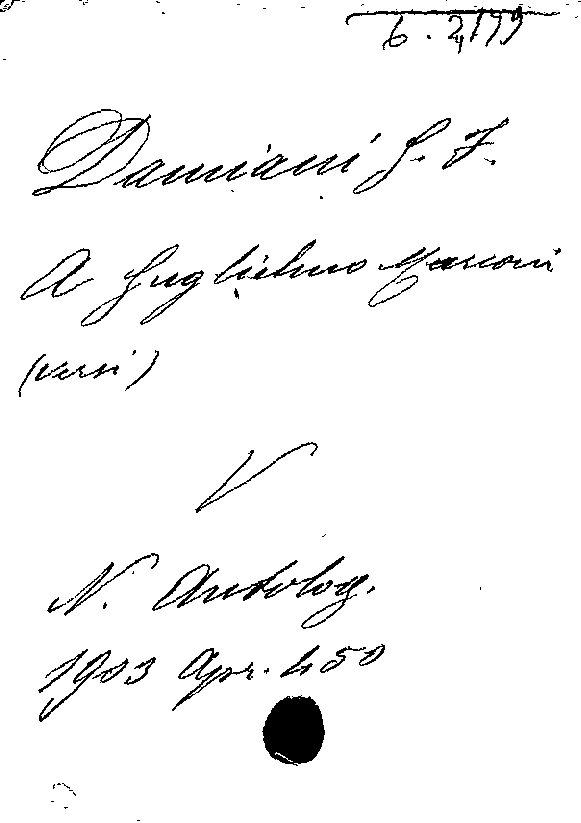 6. 2,199
Damiani G. F.
A Guglielmo Marconi
(versi)
V
N. Antolog.
1903 Apr. 450